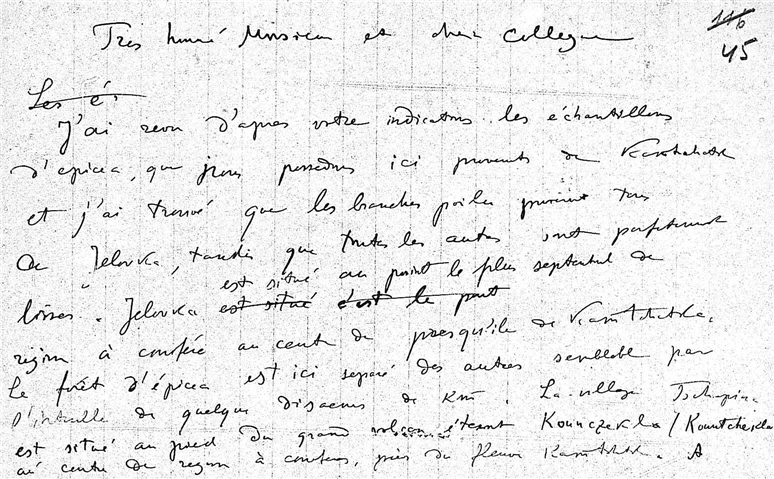 116
45
Tres honoré Monsieur et cher Collegue
Les é
J'ai revu d'apres votre indications les échantillons
d'epicea, que nous possedons ici provenants de Kamtchatka
et j'ai trouvé que les branches poilus provient tous
de Jelovka, tandis que toutes les autres sont parfaitement
lisses. Jelovka est situé c'est le point est situé au point le plus septentrional de
région à conifère au centre de presqu'ile de Kamtchatka.
Le forêt d'épicea est ici separé des autres semblable par
l'intervalle de quelque disaines de km. La village Tschapina
est situé au pied du grand volcan éteint Kounczekla / Kountchekla
au centre de region à conifers, près du fleuve Kamtchatka. A